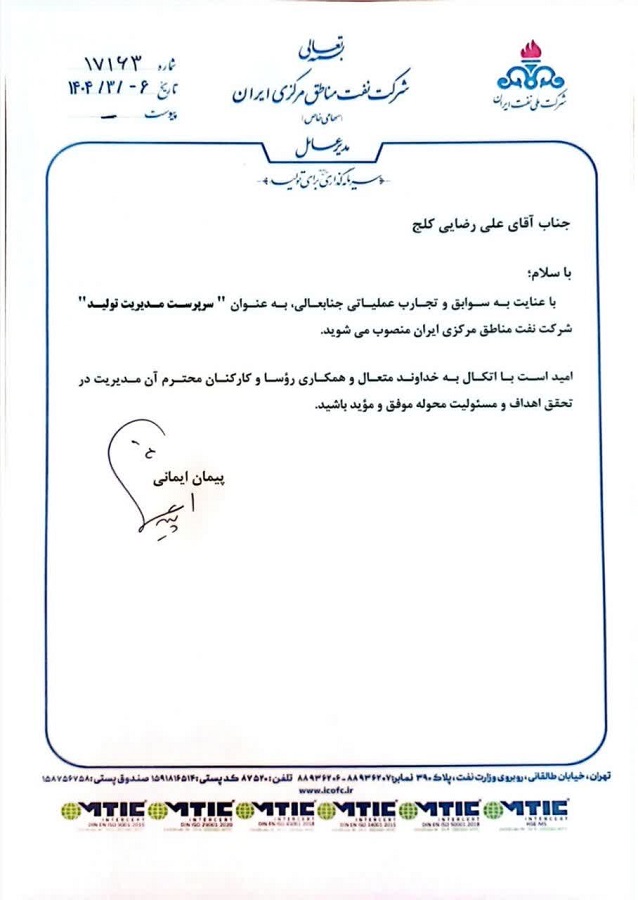 بسمه تعالی
شرکت ملی نفت ایران
شرکت نفت مناطق مرکزی ایران
(سهامی خاص)
مدیرعامل
شماره ۱۷۱۶۳
تاریخ ۱۴۰۴/۳/۰۶
پیوست —
«سرمایه گذاری برای تولید»
جناب آقای علی رضایی کلج
با سلام؛
با عنایت به سوابق و تجارب عملیاتی جنابعالی، به عنوان " سرپرست مدیریت تولید"
شرکت نفت مناطق مرکزی ایران منصوب می شوید.
امید است با اتکال به خداوند متعال و همکاری رؤسا و کارکنان محترم آن مدیریت در
تحقق اهداف و مسئولیت محوله موفق و مؤید باشید.
پیمان ایمانی
تهران، خیابان طالقانی، روبروی وزارت نفت، پلاک ۳۹۰ نمابر: ۸۸۹۳۶۲۰۷-۸۸۹۳۶۲۰۶ تلفن: ۸۷۵۲۰ کد پستی: ۱۵۹۱۸۱۶۵۱۴ صندوق پستی: ۱۵۸۷۵۶۷۵۸
www.icofc.ir
MTIC MTIC MTIC MTIC MTIC MTIC
INTERCERT INTERCERT INTERCERT INTERCERT INTERCERT INTERCERT